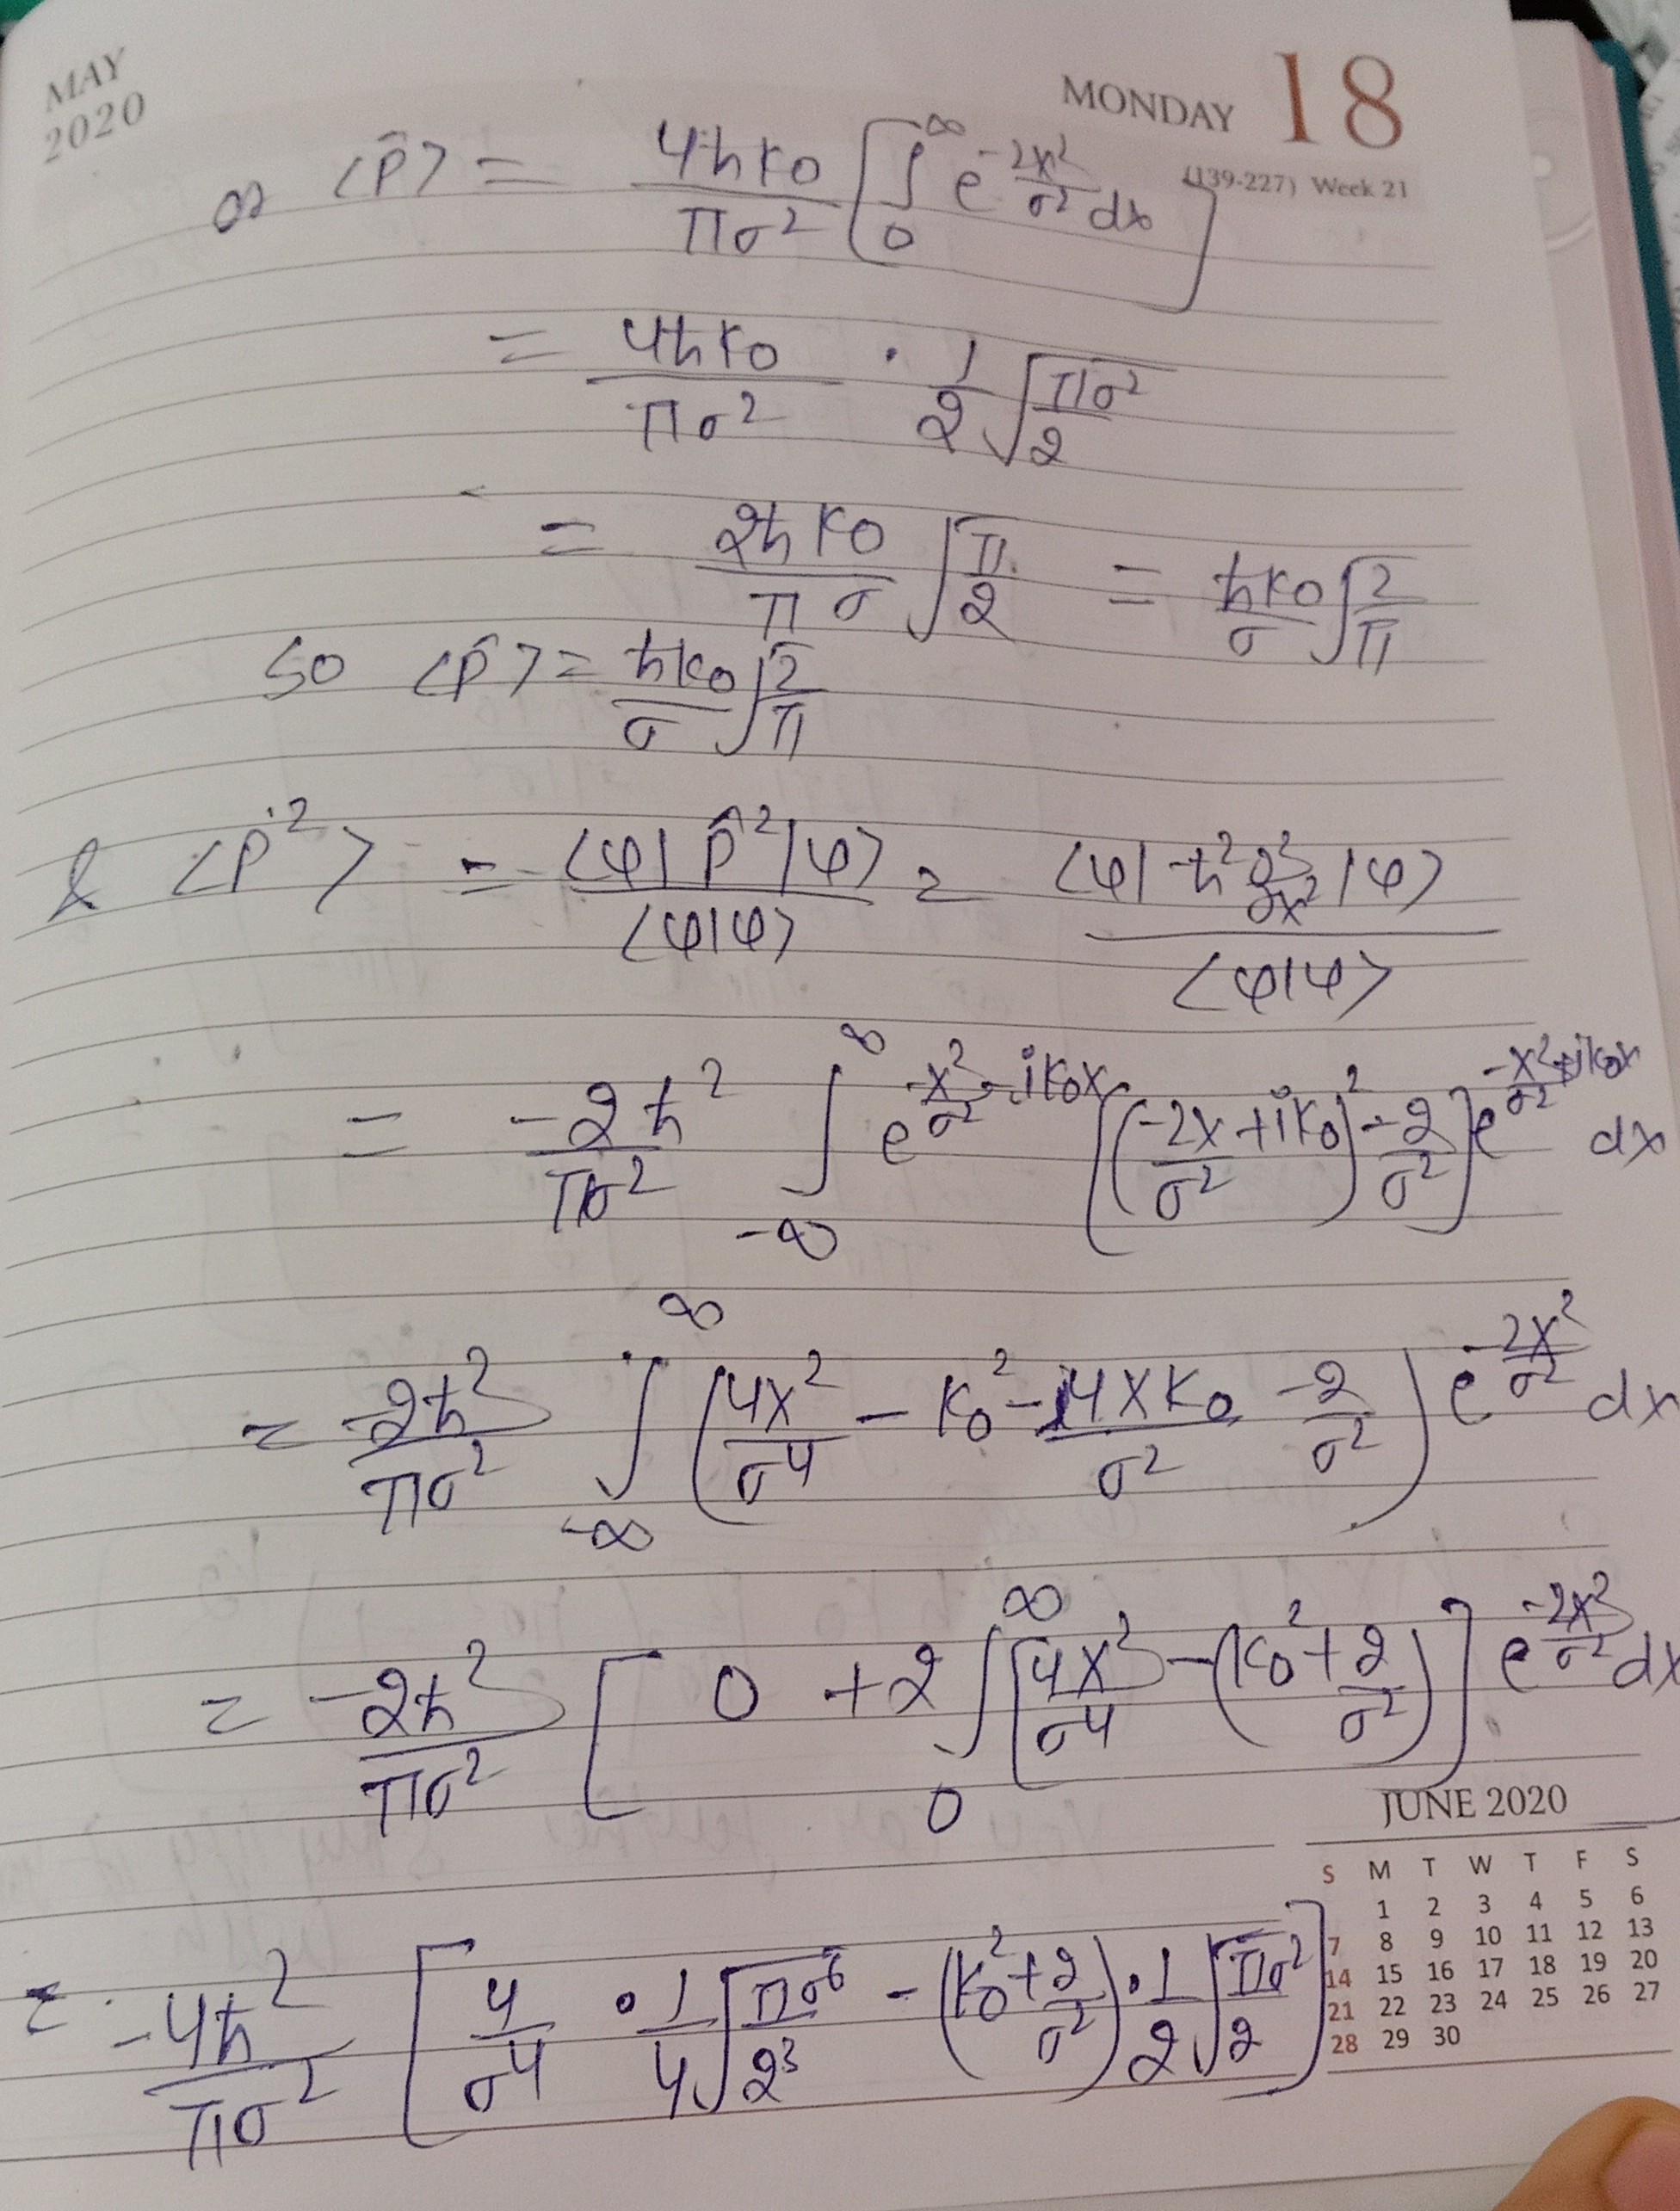 MAY
2020
MONDAY 18
(139-227) Week 21
or ⟨p̂⟩ = 4ħk0/πσ² [∫₀^∞ e^(-2x²/σ²) dx]
= 4ħk0/πσ² · 1/2 √(πσ²/2)
= 2ħk0/πσ √(π/2) = ħk0/σ √(2/π)
so ⟨p̂⟩ = ħk0/σ √(2/π)
& ⟨p̂²⟩ = ⟨φ|p̂²|φ⟩/⟨φ|φ⟩ = ⟨φ|-ħ² ∂²/∂x²|φ⟩/⟨φ|φ⟩
= -2ħ²/πσ² ∫_{-∞}^{∞} e^(-x²/σ² - ik0x) [(-2x/σ² + ik0)² - 2/σ²] e^(-x²/σ² + ik0x) dx
= -2ħ²/πσ² ∫_{-∞}^{∞} (4x²/σ⁴ - k0² - i4xk0/σ² - 2/σ²) e^(-2x²/σ²) dx
= -2ħ²/πσ² [0 + 2 ∫₀^∞ [4x²/σ⁴ - (k0² + 2/σ²)] e^(-2x²/σ²) dx
= -4ħ²/πσ² [4/σ⁴ · 1/4 √(πσ⁶/2³) - (k0² + 2/σ²) · 1/2 √(πσ²/2)]
JUNE 2020
S M T W T F S
1 2 3 4 5 6
7 8 9 10 11 12 13
14 15 16 17 18 19 20
21 22 23 24 25 26 27
28 29 30